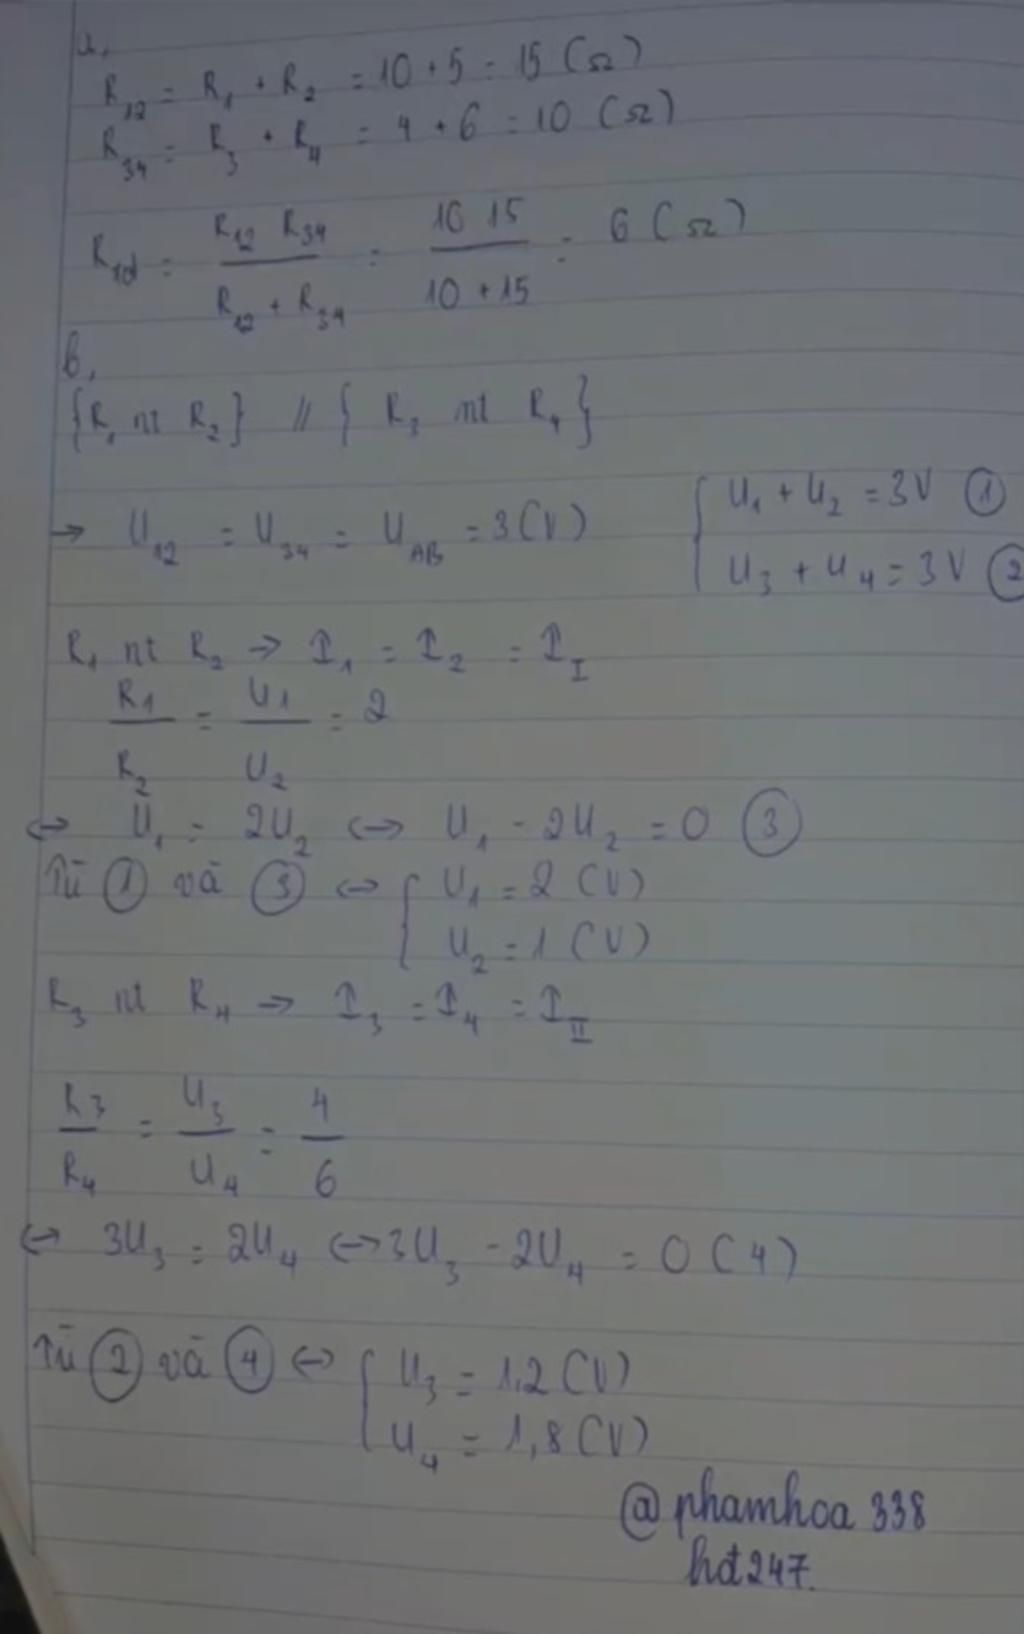 a,
R12 = R1 + R2 = 10 + 5 = 15 (Ω)
R34 = R3 + R4 = 4 + 6 = 10 (Ω)
Rtđ = R12 R34 / R12 + R34 = 10 15 / 10 + 15 = 6 (Ω)
b,
{R1 nt R2} // { R3 nt R4}
→ U12 = U34 = UAB = 3 (V)
U1 + U2 = 3V ①
U3 + U4 = 3V ②
R1 nt R2 → I1 = I2 = II
R1 / R2 = U1 / U2 = 2
↔ U1 = 2U2 ↔ U1 - 2U2 = 0 ③
Từ ① và ③ ↔ { U1 = 2 (V)
U2 = 1 (V)
R3 nt R4 → I3 = I4 = III
R3 / R4 = U3 / U4 = 4 / 6
↔ 3U3 = 2U4 ↔ 3U3 - 2U4 = 0 (4)
Từ ② và ④ ↔ { U3 = 1,2 (V)
U4 = 1,8 (V)
@phamhoa 338
hđ247.